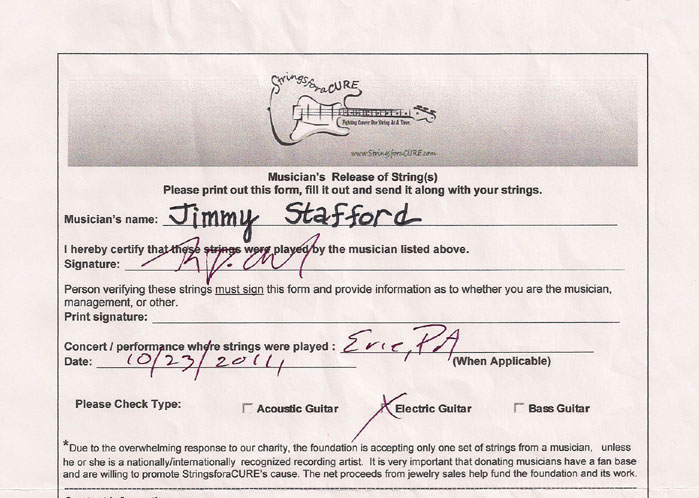 StringsforaCURE
Fighting Cancer One String At A Time
www.StringsforaCURE.com
Musician's Release of String(s)
Please print out this form, fill it out and send it along with your strings.
Musician's name: Jimmy Stafford
I hereby certify that these strings were played by the musician listed above.
Signature:
Person verifying these strings must sign this form and provide information as to whether you are the musician,
management, or other.
Print signature:
Concert / performance where strings were played : Erie, PA
Date: 10/23/2011, (When Applicable)
Please Check Type: Acoustic Guitar X Electric Guitar Bass Guitar
*Due to the overwhelming response to our charity, the foundation is accepting only one set of strings from a musician, unless
he or she is a nationally/internationally recognized recording artist. It is very important that donating musicians have a fan base
and are willing to promote StringsforaCURE's cause. The net proceeds from jewelry sales help fund the foundation and its work.